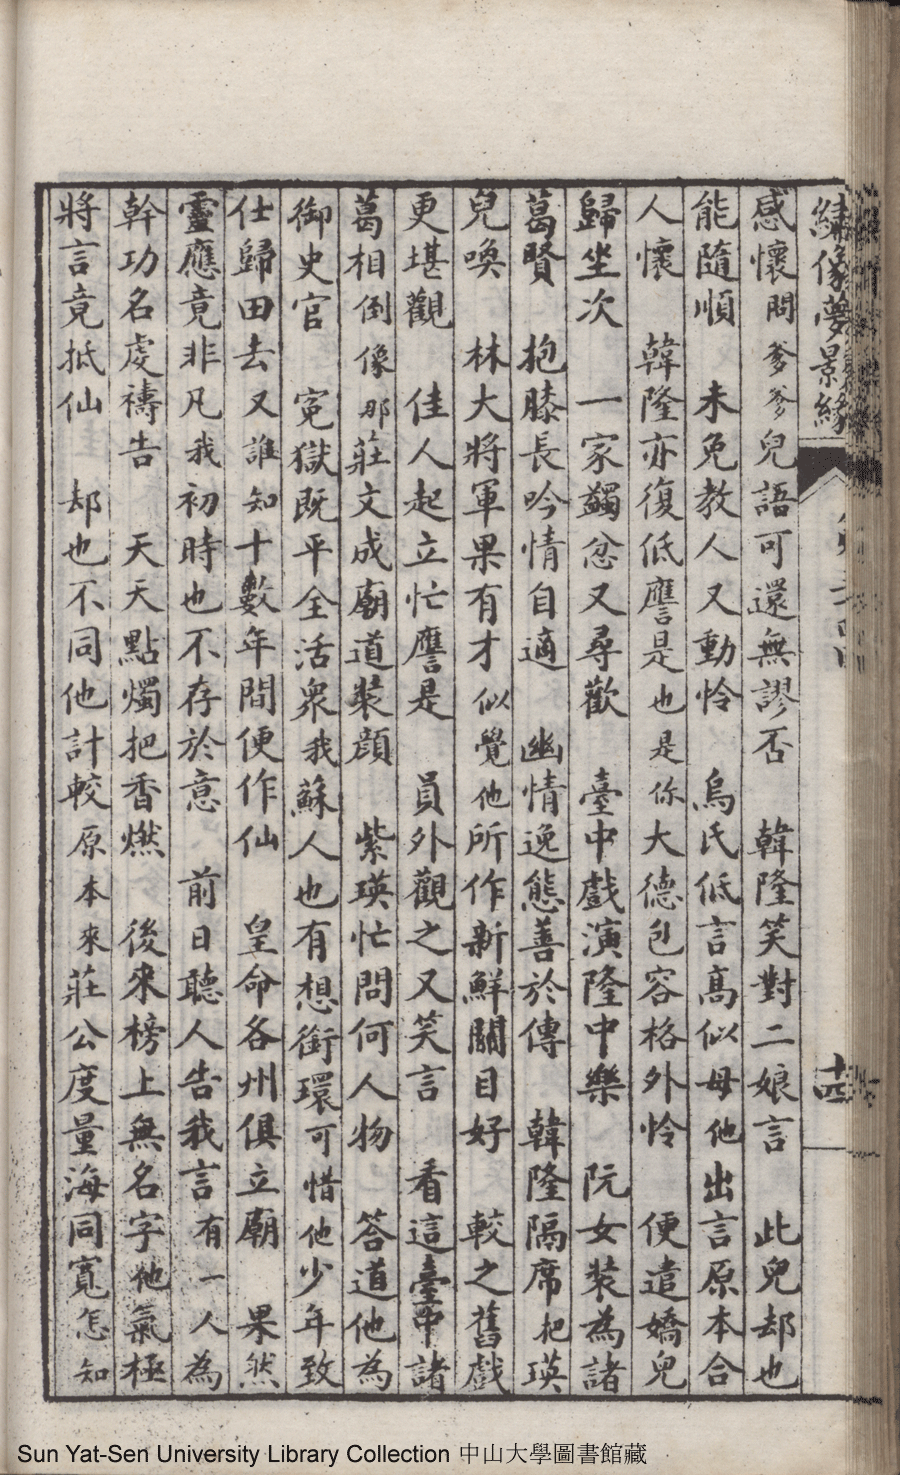 繡像夢景緣
十四
感懷問爹爹兒語可還無謬否　韓隆笑對二娘言　此兒却也
能隨順　未免教人又動怜　烏氏低言高似母他出言原本合
人懷　韓隆亦復低譍是也是你大德包容格外怜　便遣嬌兒
歸坐次　一家蠲忿又尋歡　臺中戲演隆中樂　阮女裝為諸
葛賢　抱膝長吟情自適　幽情逸態善於傳　韓隆隔席把瑛
兒喚　林大將軍果有才似覺他所作新鮮關目好　較之舊戲
更堪觀　佳人起立忙譍是　員外觀之又笑言　看這臺中諸
葛相倒像那莊文成廟道裝顔　紫瑛忙問何人物　答道他為
御史官　寃獄既平全活衆我蘇人也有想銜環可惜他少年致
仕歸田去又誰知十數年間便作仙　皇命各州俱立廟　果然
靈應竟非凡我初時也不存於意　前日聽人告我言有一人為
幹功名處禱告　天天點燭把香燃　後來榜上無名字他氣極
將言竟抵仙　却也不同他計較原本來莊公度量海同寬怎知
Sun Yat-Sen University Library Collection 中山大學圖書館藏